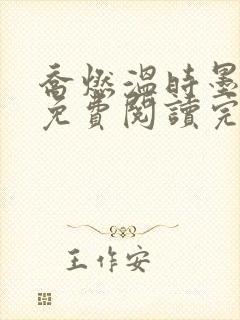 喬燃溫時墨
免費閱讀完
王作安